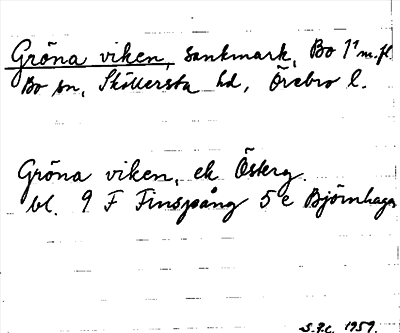 Gröna viken, sankmark, Bo 1¹ m. fl.
Bo sn, Sköllersta hd, Örebro l.
Gröna viken, ek Österg.
bl. 9 F Finspång 5 e Björnhagen
S.F.C. 1959.